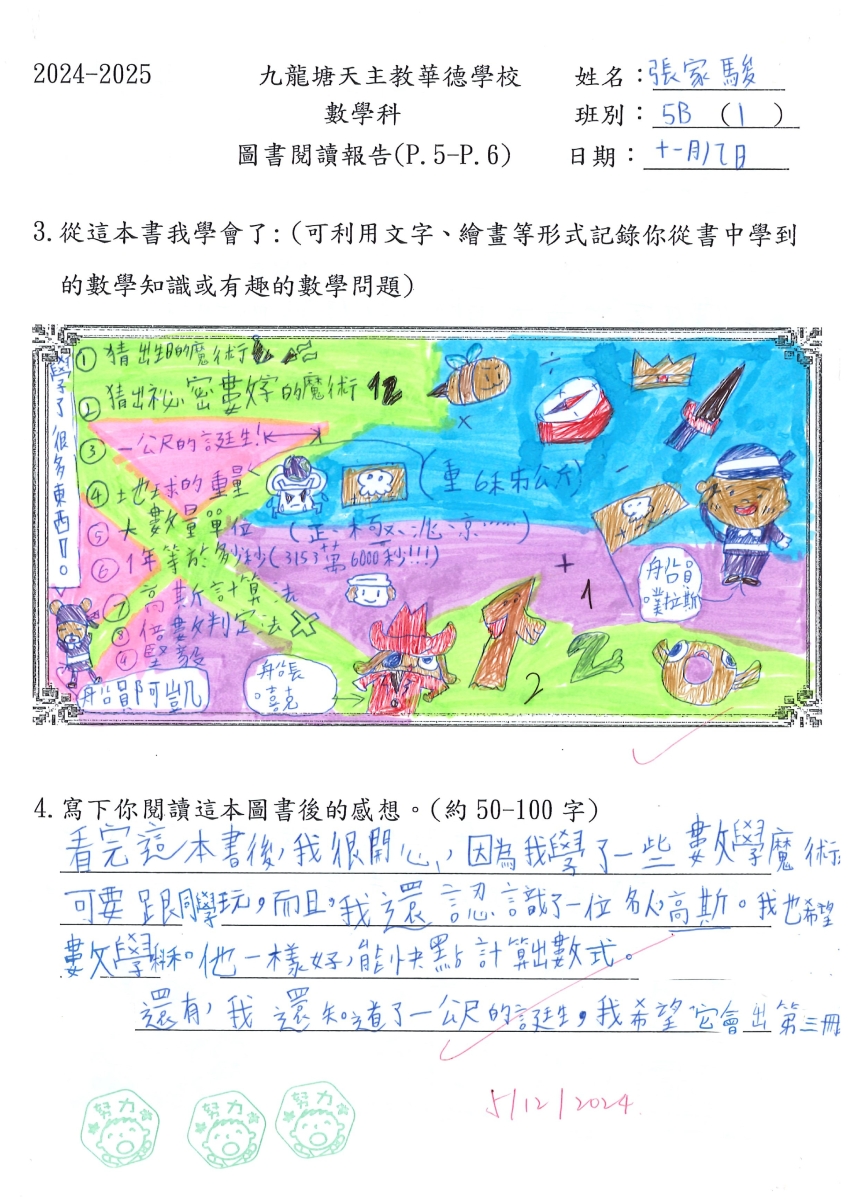 2024-2025
九龍塘天主教華德學校
姓名：張家駿
數學科
班別：5B (1)
圖書閱讀報告(P.5-P.6)
日期：十一月17日
3.從這本書我學會了:(可利用文字、繪畫等形式記錄你從書中學到
的數學知識或有趣的數學問題)
學了很多東西!!。
①猜出生日的魔術
②猜出祕密數字的魔術 12
③一公尺的誕生!
④地球的重量(重6秭公斤)
⑤大數量單位(正、極、兆、京……)
⑥1年等於多少秒(3153萬6000秒!!!)
⑦高斯計算法
⑧倍數判定法
⑨堅毅
船員阿凱
船長
嘻克
船員
噗拉斯
÷
x
-
+
1
2
2
4.寫下你閱讀這本圖書後的感想。(約50-100字)
看完這本書後，我很開心，因為我學了一些數學魔術
可要跟同學玩，而且，我還認識了一位名人高斯。我也希望
數學科和他一樣好，能快點計算出數式。
還有，我還知道了一公尺的誕生，我希望它會出第三冊
努力
努力
努力
5/12/2024.